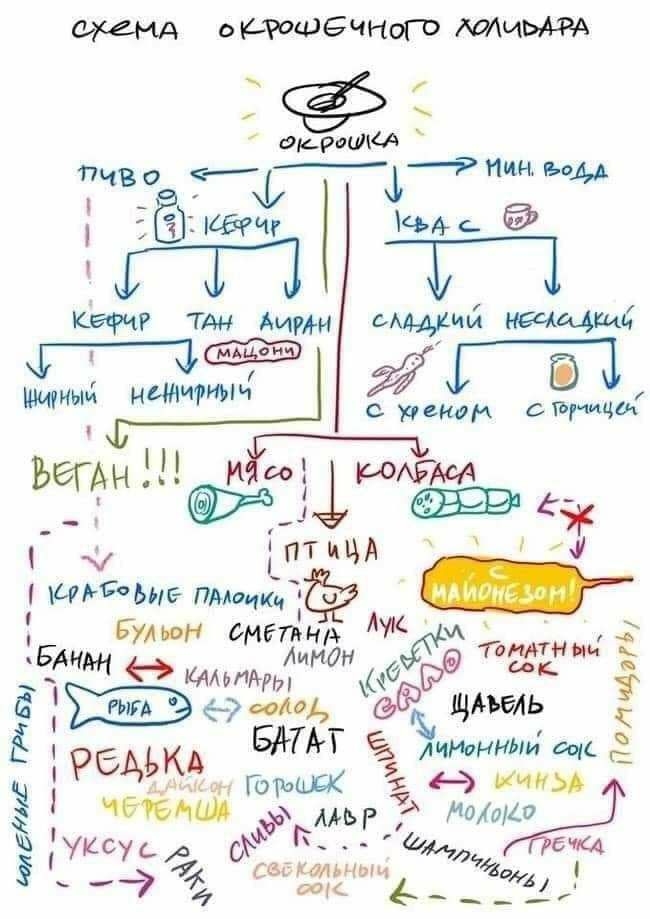 СХЕМА ОКРОШЕЧНОГО ХОЛИВАРА
ОКРОШКА
ПИВО
МИН. ВОДА
КЕФИР
КВАС
КЕФИР ТАН АИРАН
СЛАДКИЙ НЕСЛАДКИЙ
МАЦОНИ
ЖИРНЫЙ НЕЖИРНЫЙ
С ХРЕНОМ С ГОРЧИЦЕЙ
ВЕГАН!!!
МЯСО
КОЛБАСА
ПТИЦА
С МАЙОНЕЗОМ!
КРАБОВЫЕ ПАЛОЧКИ
БУЛЬОН
СМЕТАНА
ЛУК
ЛИМОН
БАНАН
КАЛЬМАРЫ
КРЕВЕТКИ
САЛО
ТОМАТНЫЙ
СОК
ПОМИДОРЫ
РЫБА
СОЛОД
ЩАВЕЛЬ
БАТАТ
ЛИМОННЫЙ СОК
СОЛЕНЫЕ ГРИБЫ
РЕДЬКА
ДАЙКОН
ГОРОШЕК
ШПИНАТ
КИНЗА
ЧЕРЕМША
СЛИВЫ
ЛАВР
МОЛОКО
УКСУС
РАКИ
СВЕКОЛЬНЫЙ
СОК
ШАМПИНЬОНЫ
ГРЕЧКА